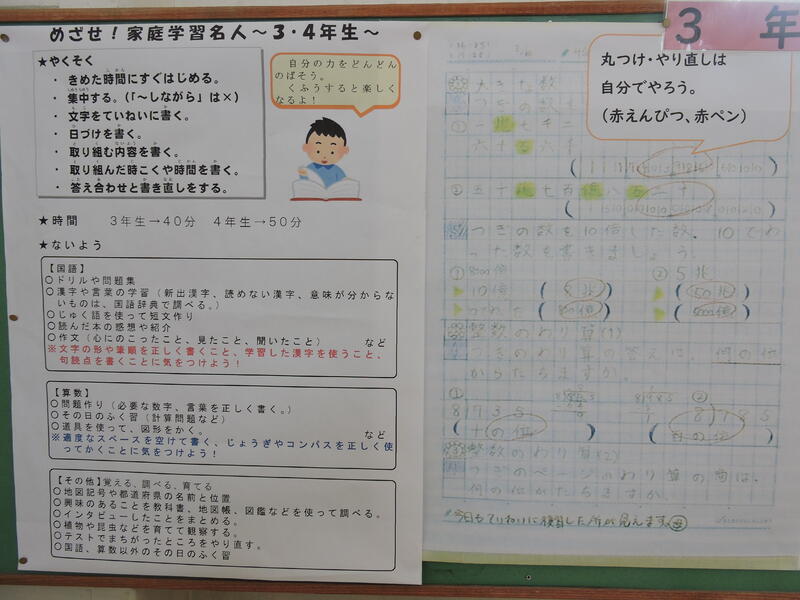 めざせ！家庭学習名人～３・４年生～
★やくそく
・きめた時間にすぐはじめる。
・集中する。(「～しながら」は×)
・文字をていねいに書く。
・日づけを書く。
・取り組む内容を書く。
・取り組んだ時こくや時間を書く。
・答え合わせと書き直しをする。
自分の力をどんどん
のばそう。
くふうすると楽しく
なるよ！
★時間　３年生→４０分　４年生→５０分
★ないよう
【国語】
○ドリルや問題集
○漢字や言葉の学習（新出漢字、読めない漢字、意味が分からな
いものは、国語辞典で調べる。）
○じゅく語を使って短文作り
○読んだ本の感想や紹介
○作文（心にのこったこと、見たこと、聞いたこと）　など
※文字の形や筆順を正しく書くこと、学習した漢字を使うこと、
句読点を書くことに気をつけよう！
【算数】
○問題作り（必要な数字、言葉を正しく書く。）
○その日のふく習（計算問題など）
○道具を使って、図形をかく。　など
※適度なスペースを空けて書く、じょうぎやコンパスを正しく使
ってかくことに気をつけよう！
【その他】覚える、調べる、育てる
○地図記号や都道府県の名前と位置
○興味のあることを教科書、地図帳、図鑑などを使って調べる。
○インタビューしたことをまとめる。
○植物や昆虫などを育てて観察する。
○テストでまちがったところをやり直す。
○国語、算数以外のその日のふく習
３　年
丸つけ・やり直しは
自分でやろう。
(赤えんぴつ、赤ペン)
大きな数
つぎの数を
① 一兆七千二
六十五
② 五十兆七百億八万二千
つぎの数を10倍した数、10でわ
った数を書きましょう。
① 8000億　② 5兆
10倍 (8兆)　(50兆)
(800億)　(5000億)
整数のわり算(1)
つぎのわり算の答えは、何の位
からたちますか。
① ②
(十の位)
整数のわり算(2)
つぎのページのわり算の商は、
何の位からたちますか。
今日もていねいに練習した所が見えます。